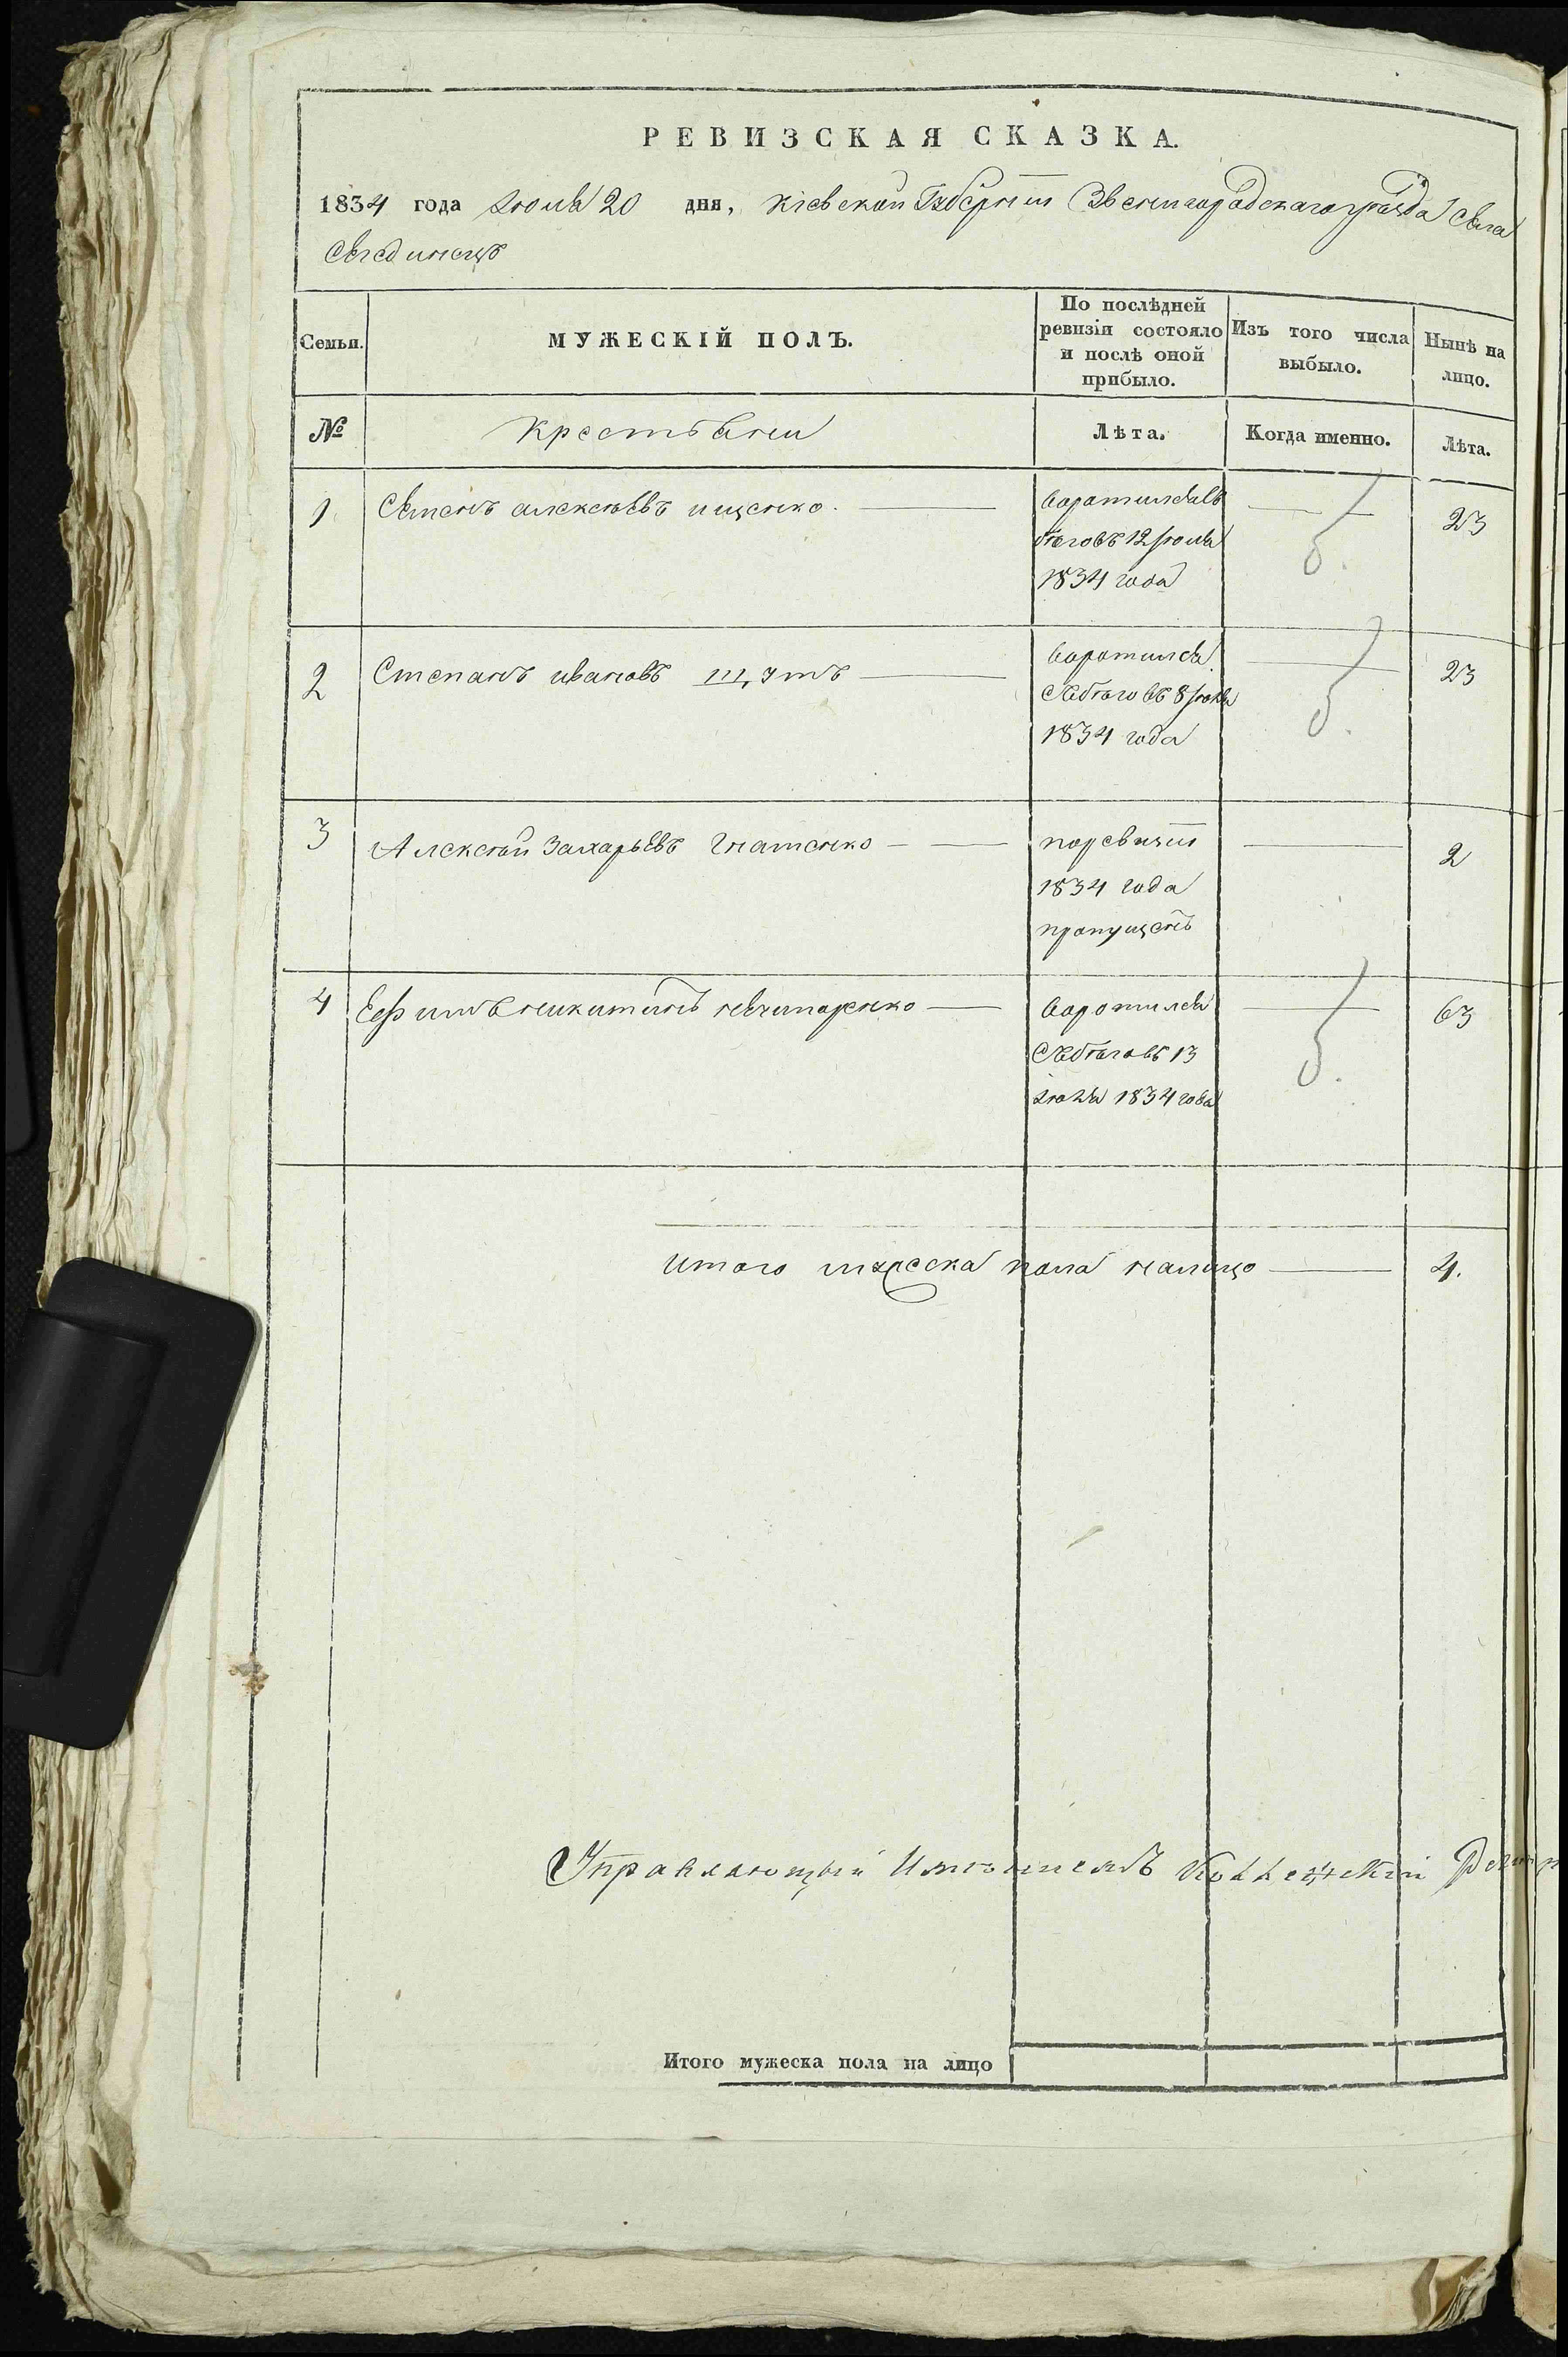 РЕВИЗСКАЯ СКАЗКА.
1834 года Июля 20 дня, Кіевской Губерніи Звенигородскаго уезда Села
Семьи. МУЖЕСКІЙ ПОЛЪ. По послѣдней ревизіи состояло и послѣ оной прибыло. Изъ того числа выбыло. Нынѣ на лицо.
№ Крестьяни Лѣта. Когда именно. Лѣта.
1 Семенъ алексѣевъ ищенко 23
воротился съ
бѣговъ 12 Июля
1834 года
б.
2 Степанъ ивановъ 23
воротился
съ бѣговъ 8 Июля
1834 года
б.
3 Алексѣй Захарьевъ Гнатенко 2
поревизіи
1834 года
пропущенъ
4 Ефимъ никитинъ нечипоренко 63
воротился
съ бѣговъ 13
июля 1834 года
б.
Итого мужеска пола налицо 4.
Управляющый Имѣніемъ Коллежскій
Итого мужеска пола на лицо